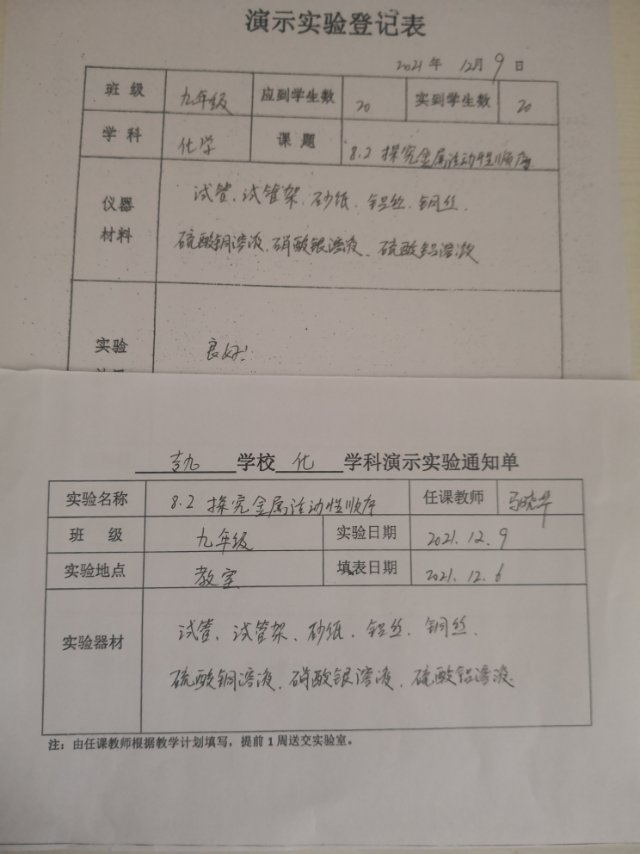 演示实验登记表
2021年 12月9日
班级 九年级 应到学生数 20 实到学生数 20
学科 化学 课题 8.2 探究金属活动性顺序
仪器材料 试管、试管架、砂纸、铝丝、铜丝、
硫酸铜溶液、硝酸银溶液、硫酸铝溶液
实验 良好
学校 化 学科演示实验通知单
实验名称 8.2 探究金属活动性顺序 任课教师 马晓华
班级 九年级 实验日期 2021.12.9
实验地点 教室 填表日期 2021.12.6
实验器材 试管、试管架、砂纸、铝丝、铜丝、
硫酸铜溶液、硝酸银溶液、硫酸铝溶液
注：由任课教师根据教学计划填写，提前1周送交实验室。